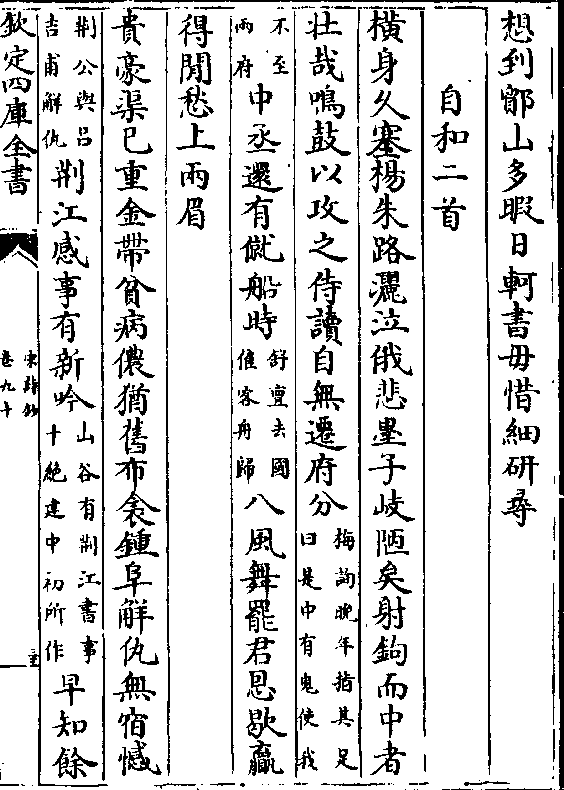 想到鄮山多暇日軻書毋惜細研尋
自和二首
橫身久塞楊朱路灑泣俄悲墨子岐陋矣射鉤而中者
壯哉鳴鼓以攻之侍讀自無遷府分梅詢晚年指其足曰是中有鬼使我
不至兩府中丞還有僦船時舒亶去國僱客舟歸八風舞罷君恩歇贏
得閒愁上兩眉
貴豪渠已重金帶貧病儂猶舊布衾鍾阜解仇無宿憾
荆公與呂吉甫解仇荆江感事有新吟山谷有荆江書事十絶建中初所作早知餘
欽定四庫全書
宋詩鈔
卷九十